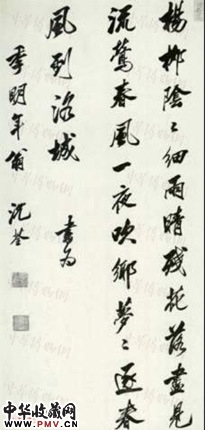 楊柳陰〻細雨晴殘花落盡見
流鶯春風一夜吹鄉夢〻逐春
風到洛城
書為
季明年翁
沈荃
中华收藏网
www.PMV.cn